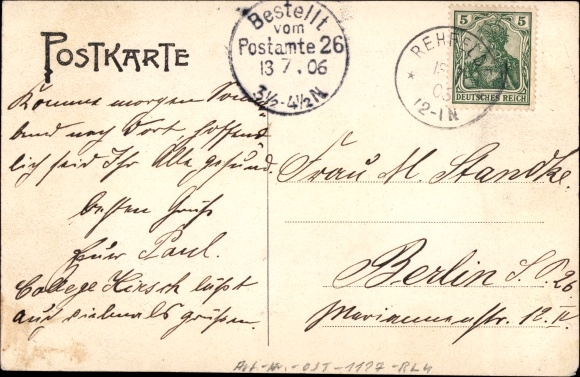 POSTKARTE
Bestellt
vom
Postamte 26
13 7. 06
3½-4½N
REHFEL
12-1N
5 5
DEUTSCHES REICH
Komme morgen Sonn
abend nach dort, hoffent
lich seid Ihr Alle gesund.
besten Gruß
Euer Paul.
College Hirsch läßt
auch vielmals grüßen.
Frau M. Standke.
Berlin S.O. 26
Mariannenstr. 12 II.
OST-1127-RLH